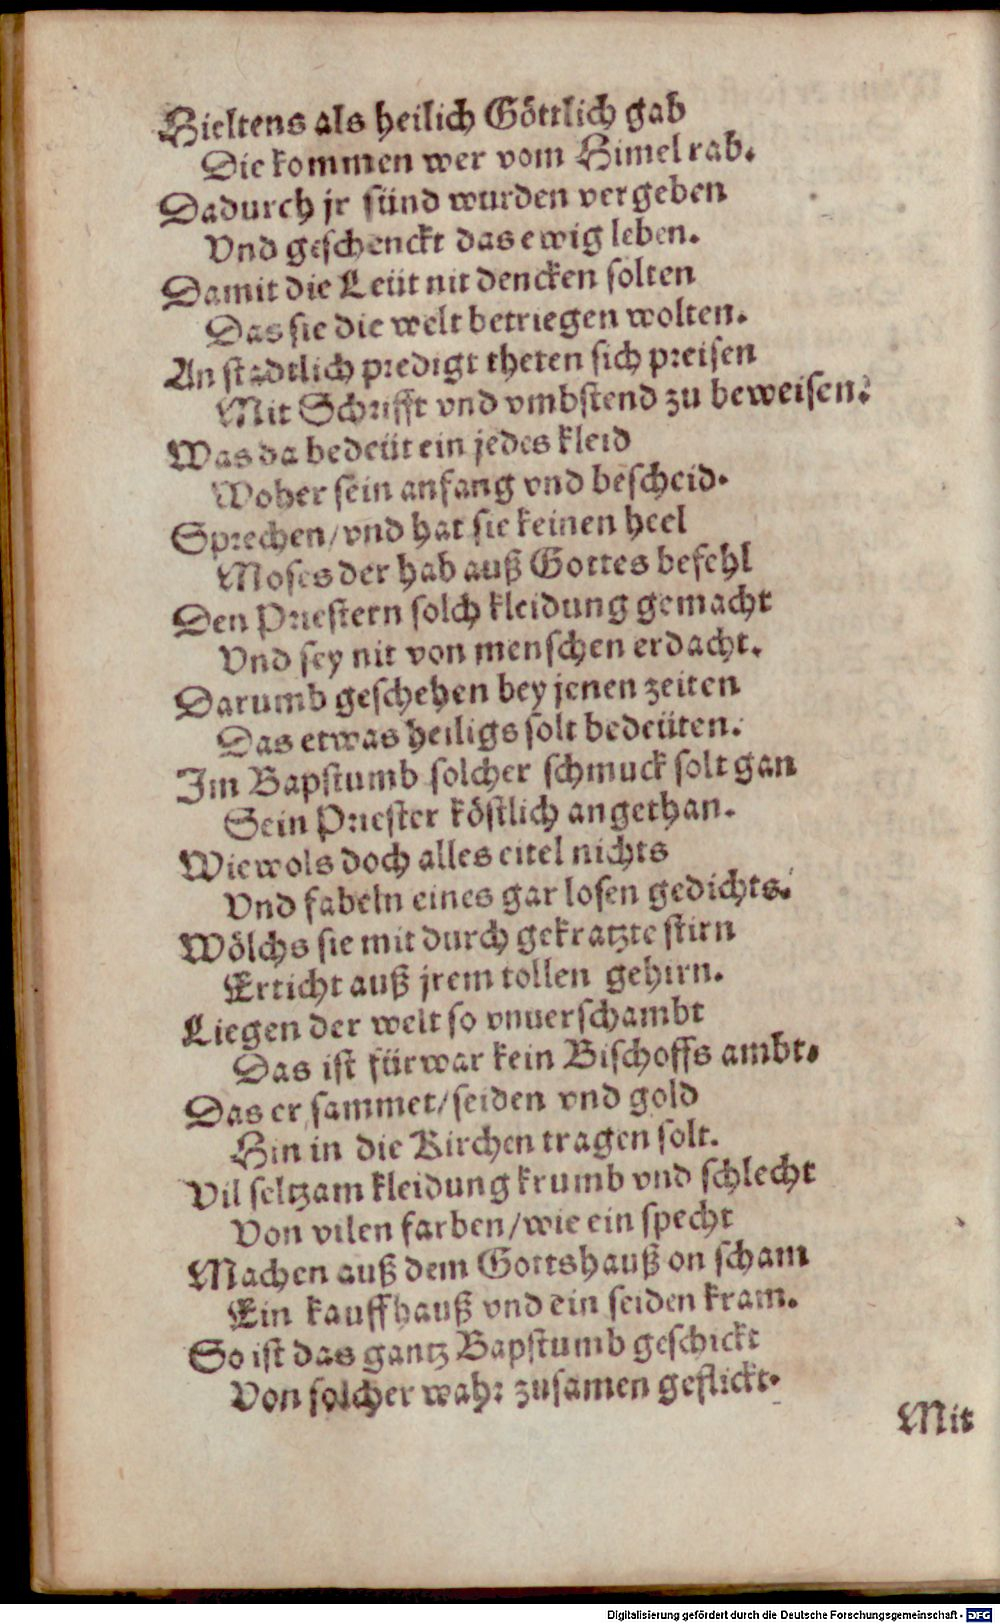 Hieltens als heilich Göttlich gab
Die kommen wer vom Himel rab.
Dadurch jr sünd wurden vergeben
Vnd geschenckt das ewig leben.
Damit die Leüt nit dencken solten
Das sie die welt betriegen wolten.
An stadtlich predigt theten sich preisen
Mit Schrifft vnd vmbstend zu beweisen.
Was da bedeüt ein jedes kleid
Woher sein anfang vnd bescheid.
Sprechen/vnd hat sie keinen heel
Moses der hab auß Gottes befehl
Den Priestern solch kleidung gemacht
Vnd sey nit von menschen erdacht.
Darumb geschehen bey jenen zeiten
Das etwas heiligs solt bedeüten.
Im Bapstumb solcher schmuck solt gan
Sein Priester köstlich angethan.
Wiewols doch alles eitel nichts
Vnd fabeln eines gar losen gedichts.
Wölchs sie mit durch gekratzte stirn
Erticht auß jrem tollen gehirn.
Liegen der welt so vnuerschambt
Das ist fürwar kein Bischoffs ambt.
Das er sammet/seiden vnd gold
Hin in die Kirchen tragen solt.
Vil seltzam kleidung krumb vnd schlecht
Von vilen farben/wie ein specht
Machen auß dem Gottshauß on scham
Ein kauffhauß vnd ein seiden kram.
So ist das gantz Bapstumb geschickt
Von solcher wahr zusamen geflickt.
Mit
Digitalisierung gefördert durch die Deutsche Forschungsgemeinschaft - DFG